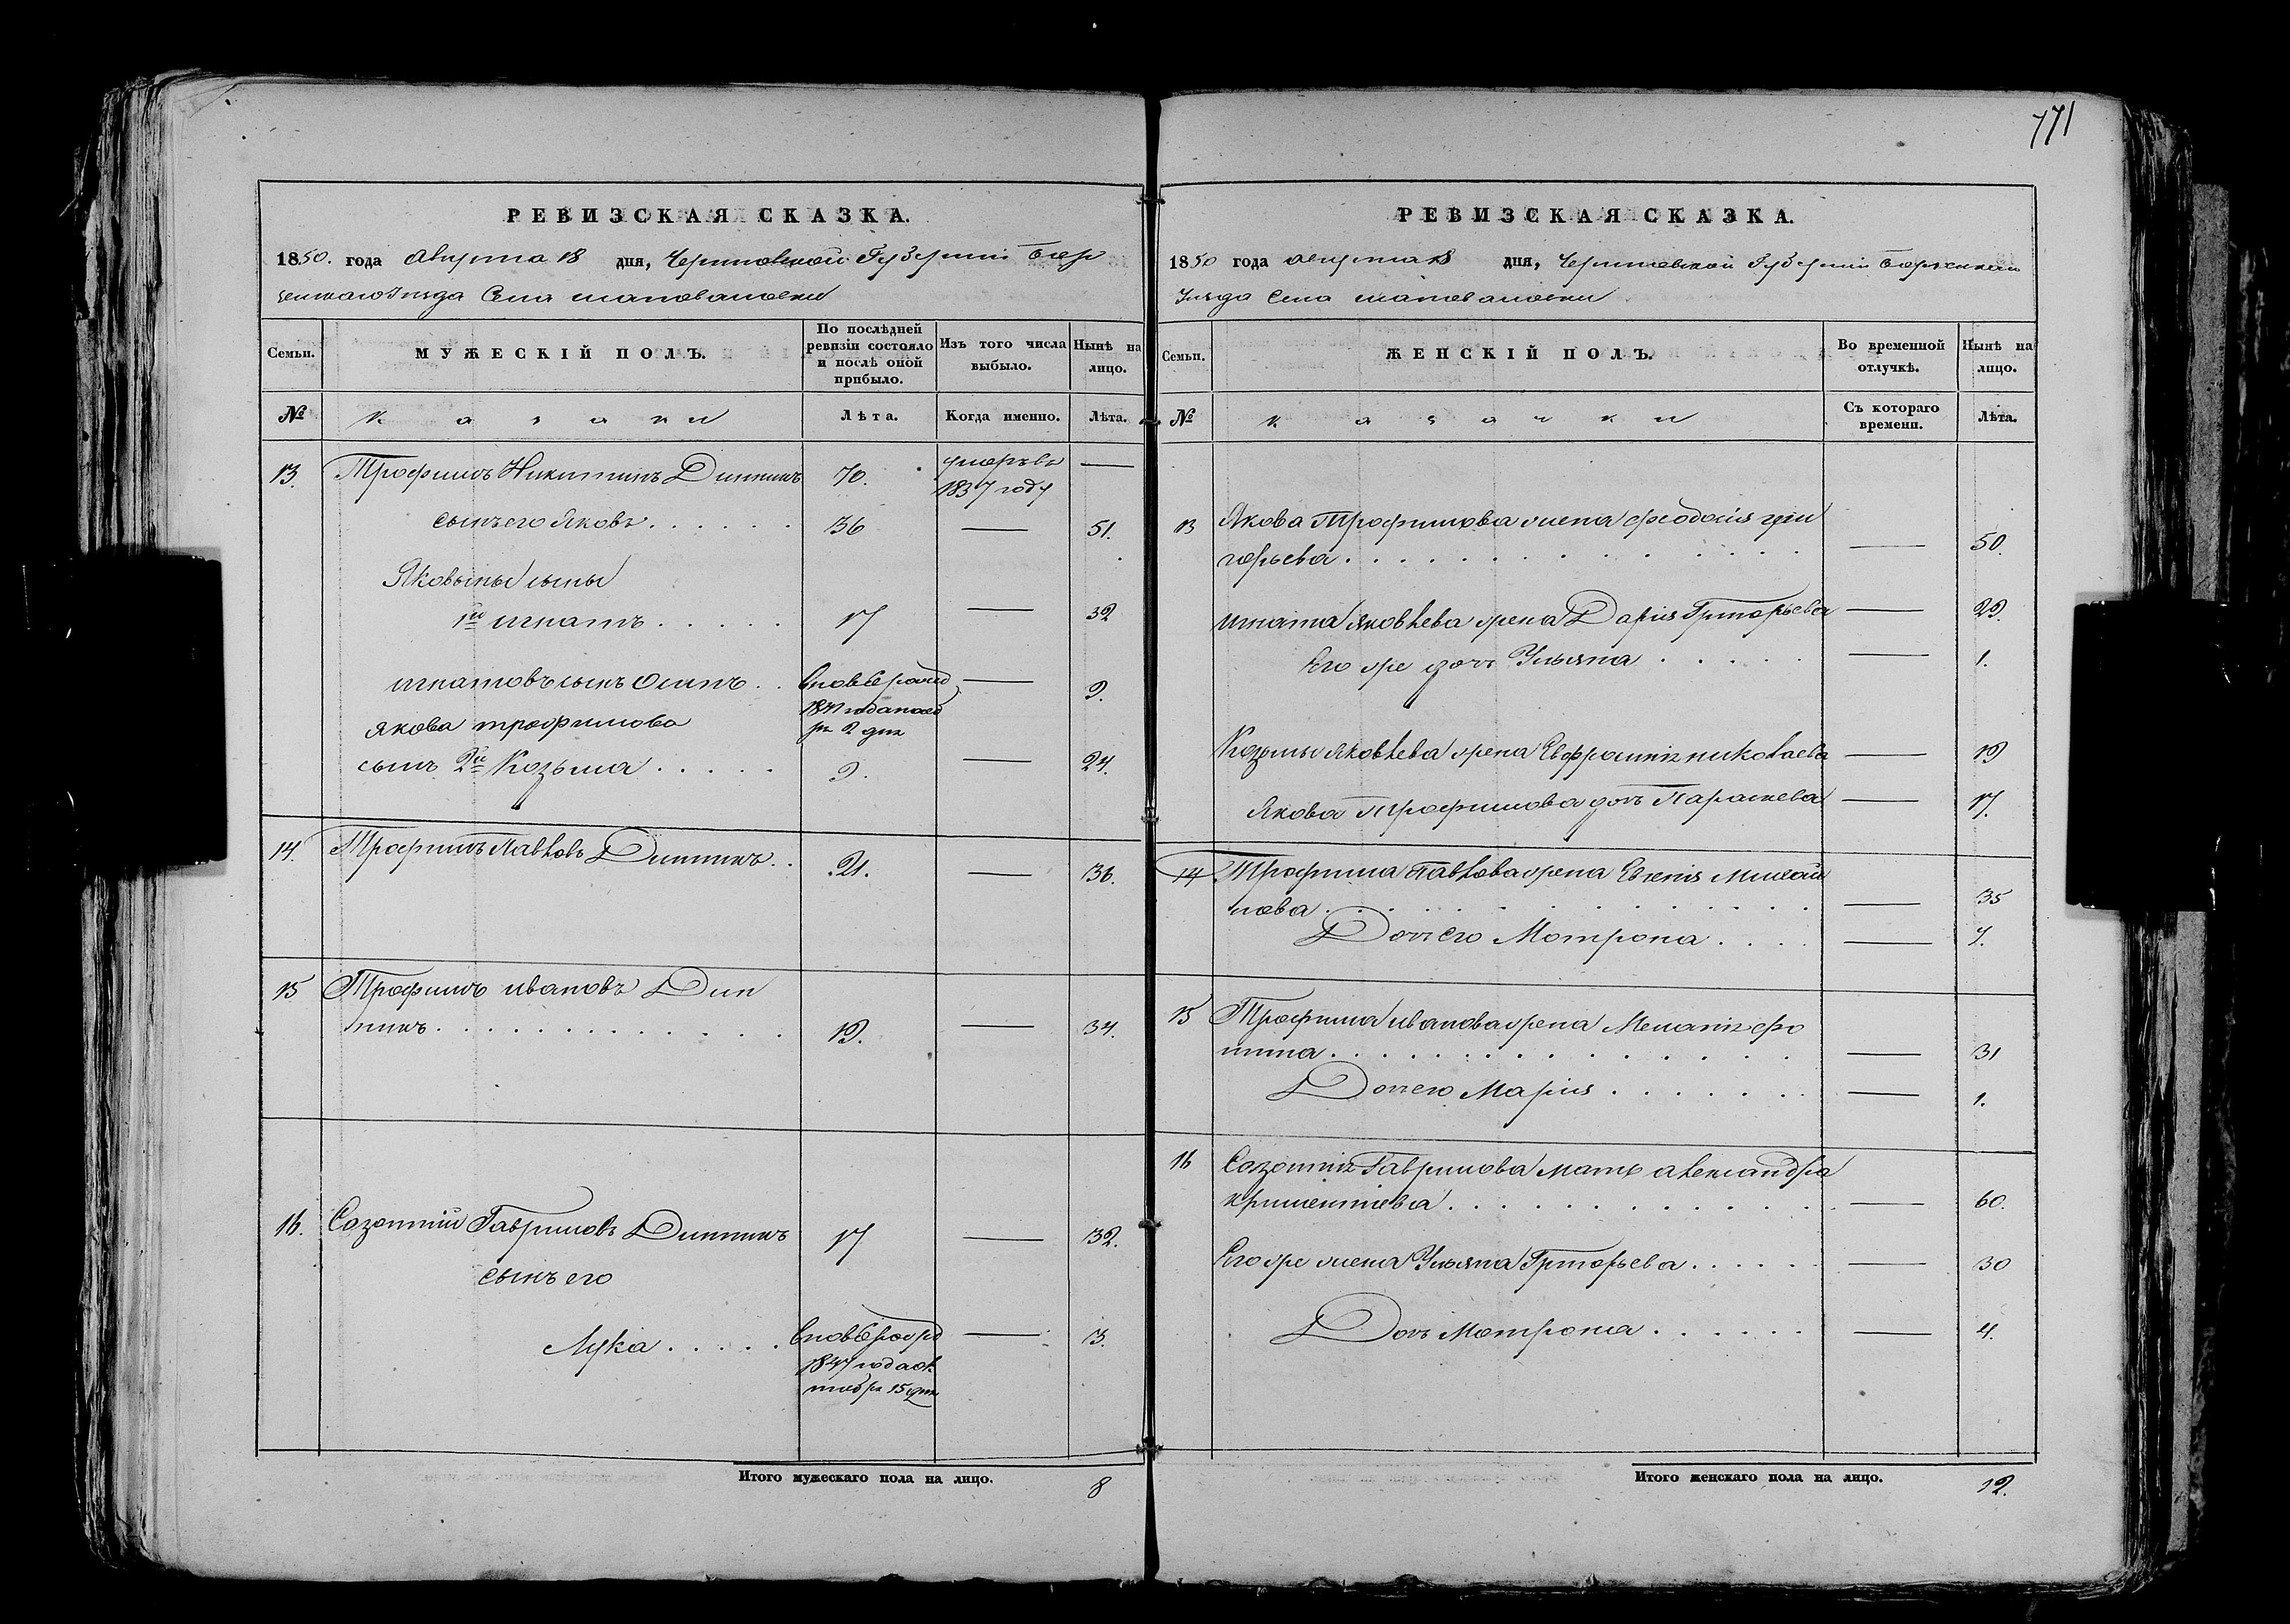 РЕВИЗСКАЯ СКАЗКА.
1850. года Августа 18 дня, Черниговской Губерніи Бор
зенскаго Уезда Села Шаповаловки
Семьи.
МУЖЕСКІЙ ПОЛЪ.
По послѣдней ревизіи состояло и послѣ оной прибыло.
Изъ того числа выбыло.
Нынѣ на лицо.
№
казаки
Лѣта.
Когда именно.
Лѣта.
13. Трофимъ Никитинъ 70. умеръ въ —
1837 году
сынъ его Яковъ 36 — 51.
Яковыны сыны
1й игнатъ 17 — 32
игнатовъ сынъ Осипъ вновь рожд — 9.
якова трофимова
2 дня
сынъ 2й Козьма 9. — 24.
14. Трофимъ Павловъ 21. — 36.
15 Трофимъ ивановъ
19. — 34.
16. Созонтій Гавриловъ 17 — 32.
сынъ его
Лука вновь рожд — 3.
1847 года ок
тября 15 дня
Итого мужескаго пола на лицо. 8
771
РЕВИЗСКАЯ СКАЗКА.
1850 года августа 18 дня, Черниговской Губерніи Борзенскаго
Уезда Села шаповаловки
Семьи.
ЖЕНСКІЙ ПОЛЪ.
Во временной отлучкѣ.
Нынѣ на лицо.
№
казачки
Съ котораго времени.
Лѣта.
13 Якова Трофимова жена феодосия гри
горьева — 50.
игната яковлева жена Дарія Григорьева — 29.
Его же дочь Ульяна — 1.
Козьмы яковлева жена Евфросинія николаева — 19
Якова Трофимова дочь Параскева — 17.
14 Трофима Павлова жена Евгенія Михай
лова — 35
Дочь его Мотрона — 7.
15 Трофима иванова жена Меланія фо
мина — 31
Дочь его Марія — 1.
16 Созонтія Гаврилова мать александра
климентіева — 60.
Его же жена Ульяна Григорьева — 30
Дочь Мотрона — 4.
Итого женскаго пола на лицо. 12.